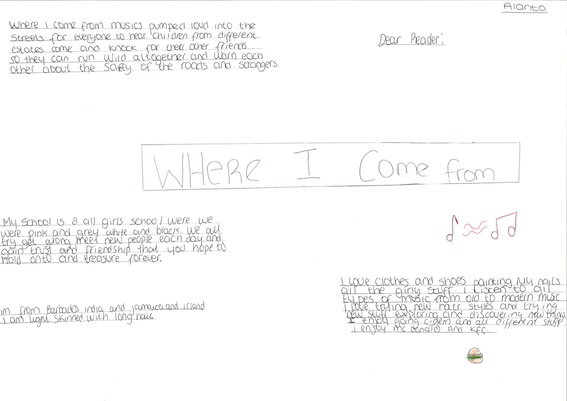 Alanta
Where I come from musics pumped loud into the
streets for everyone to hear. Children from different
estates come and knock for their other friends
so they can run wild altogether and warn each
other about the safty of the roads and strangers.
Dear Reader:
WHeRe I Come from
My School is a all girls school were we
were pink and grey white and black. We all
try get along meet new people each day and
gain trust and friendship that you hope to
hold onto and treasure forever.
im from Barbudos india and jamaica and irland
I am light skinned with long hair.
I love clothes and shoes painting my nails
all the girly stuff. I listen to all
types of music from old to modern music
I love trying new hair styles and trying
new stuff exploring and discovering new things
I enjoy going cinem and all different stuff
I enjoy Mc Donald and KFC